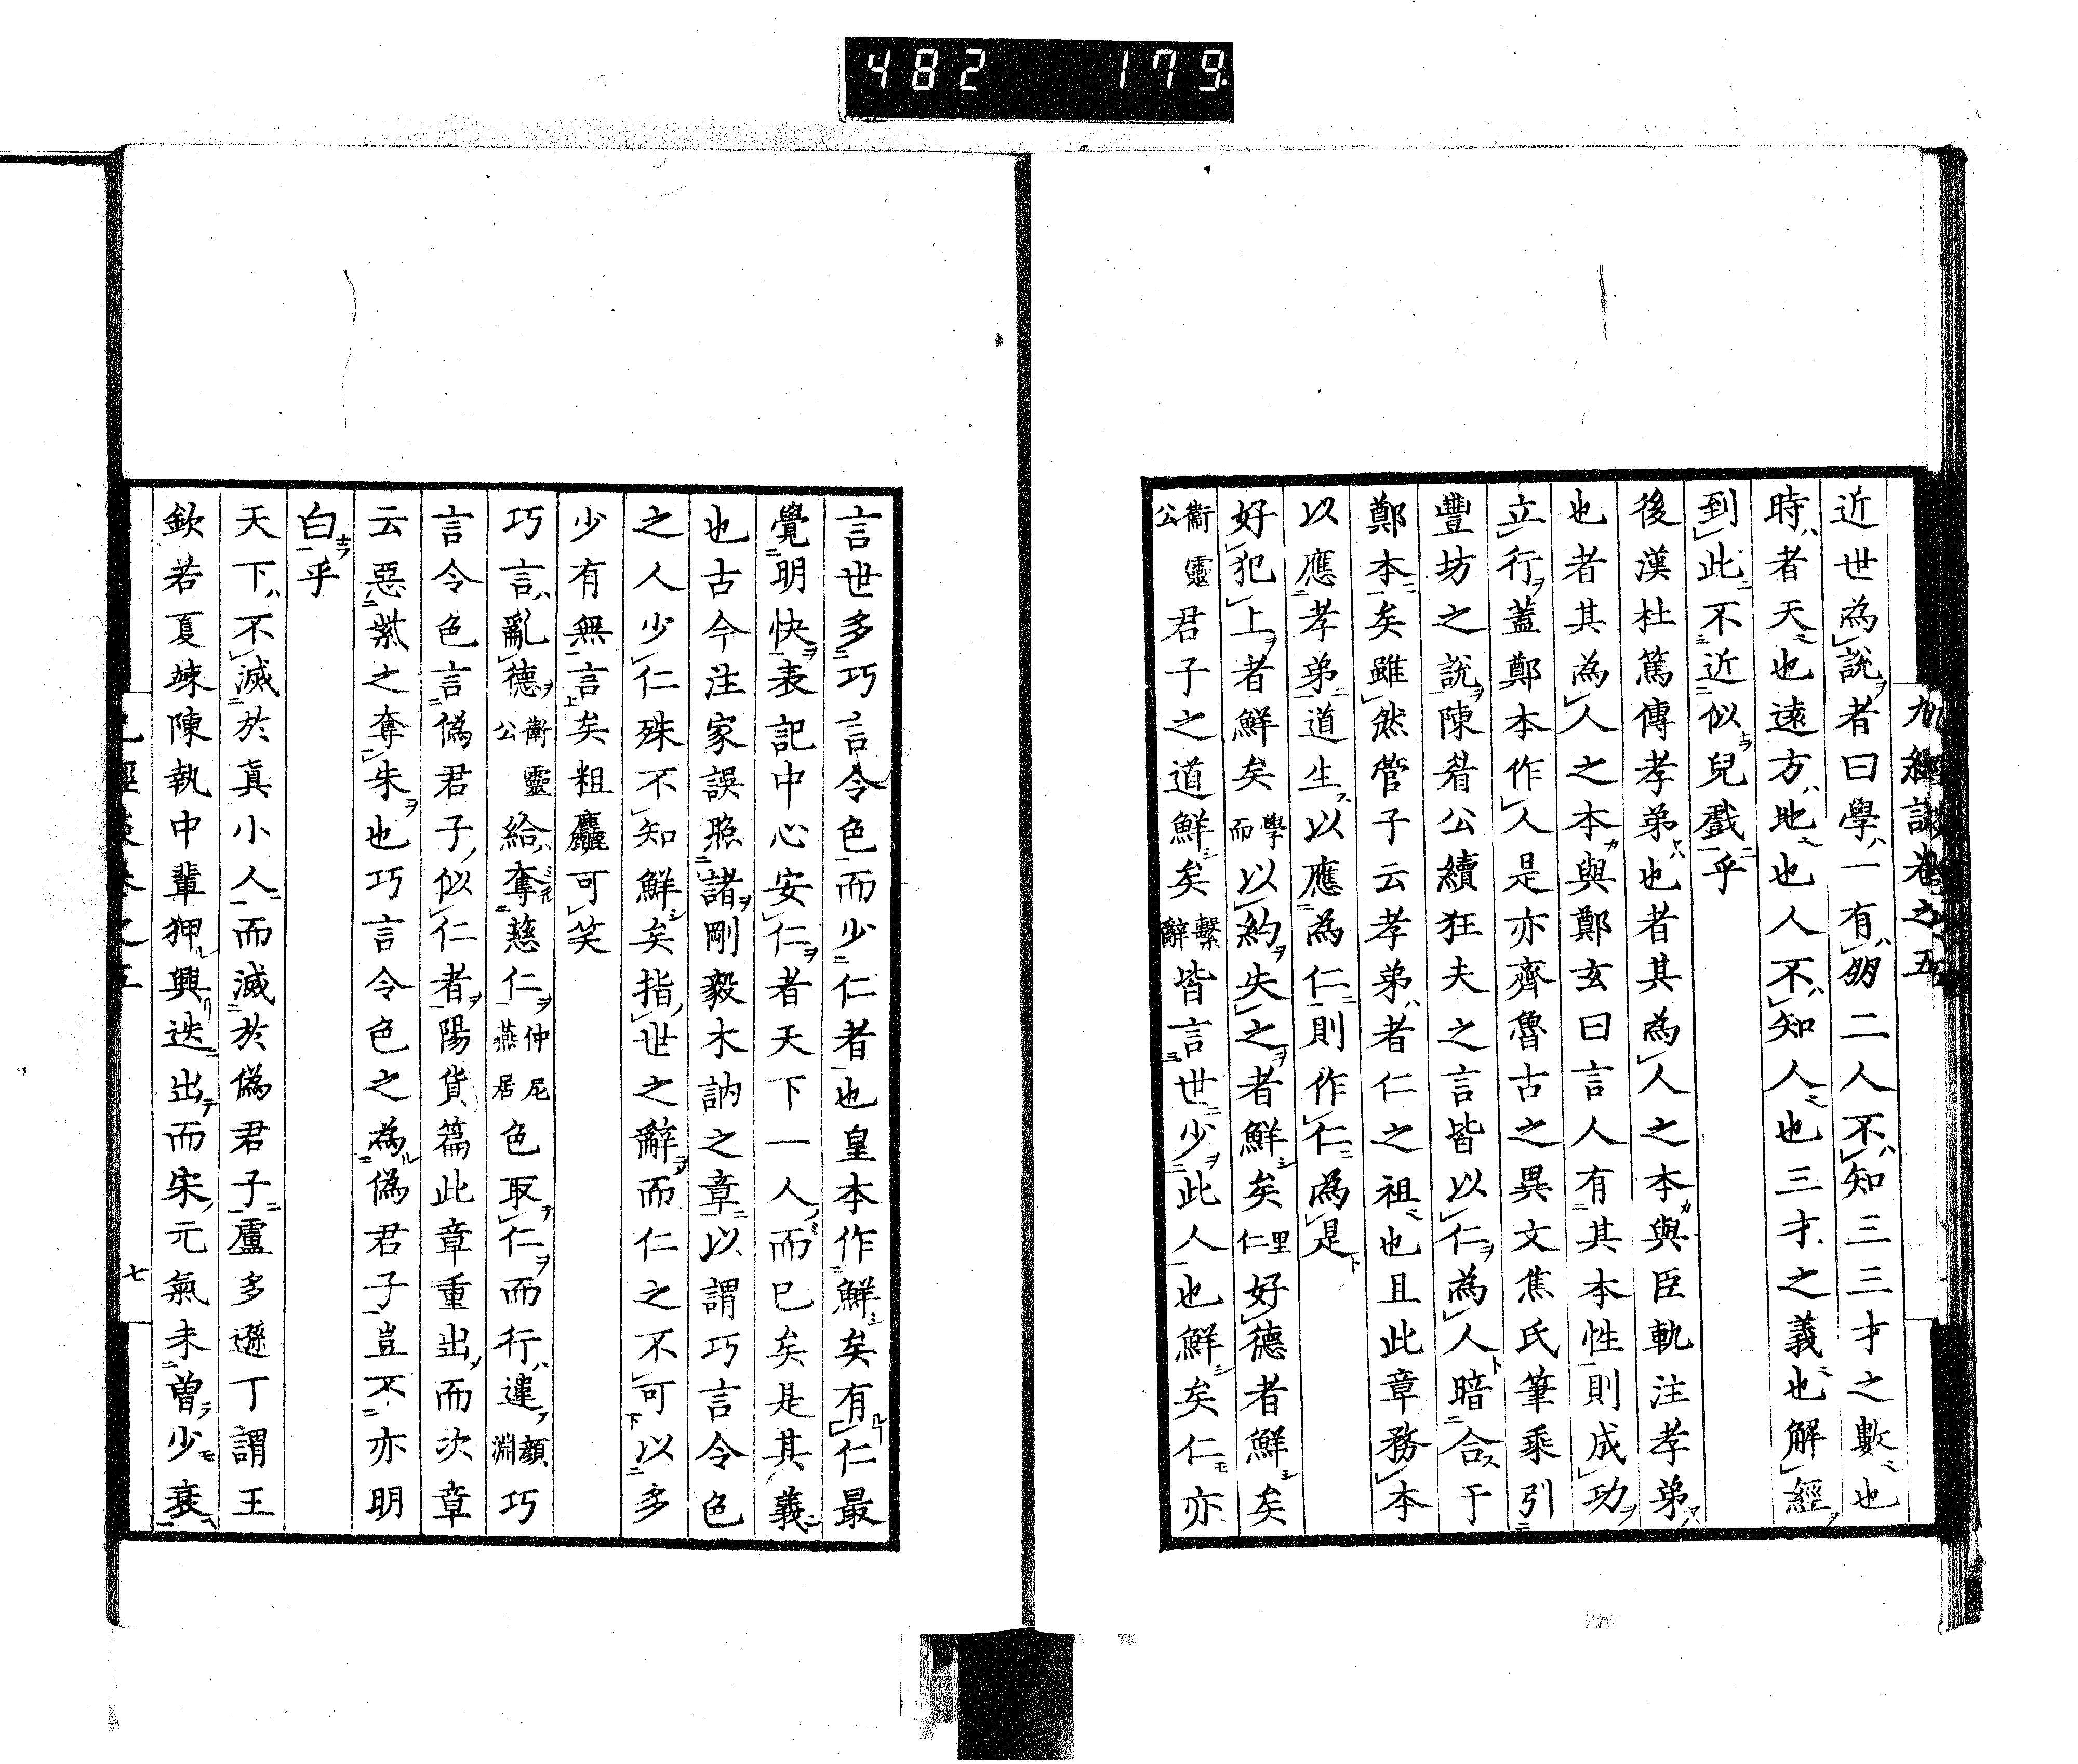 482 179
九經談卷之五
近世為說者曰學一有朋二人不知三三才之數也
時者天也遠方地也人不知人也三才之義也解經
到此不近似兒戲乎
後漢杜篤傳孝弟也者其為人之本與臣軌注孝弟
也者其為人之本與鄭玄曰言人有其本性則成功
立行蓋鄭本作人是亦齊魯古之異文焦氏筆乘引
豐坊之說陳耆公續狂夫之言皆以仁為人暗合于
鄭本矣雖然管子云孝弟者仁之祖也且此章務本
以應孝弟道生以應為仁則作仁為是
好犯上者鮮矣學而以約失之者鮮矣里仁好德者鮮矣
衞靈公君子之道鮮矣繫辭皆言世少此人也鮮矣仁亦
言世多巧言令色而少仁者也皇本作鮮矣有仁最
覺明快表記中心安仁者天下一人而已矣是其義
也古今注家誤照諸剛毅木訥之章以謂巧言令色
之人少仁殊不知鮮矣指世之辭而仁之不可以多
少有無言矣粗麤可笑
巧言亂德衞靈公給奪慈仁仲尼燕居色取仁而行違顏淵巧
言令色言偽君子似仁者陽貨篇此章重出而次章
云惡紫之奪朱也巧言令色之為偽君子豈不亦明
白乎
天下不滅於真小人而滅於偽君子盧多遜丁謂王
欽若夏竦陳執中輩狎興迭出而宋元氣未曾少衰
九經談卷之五 七